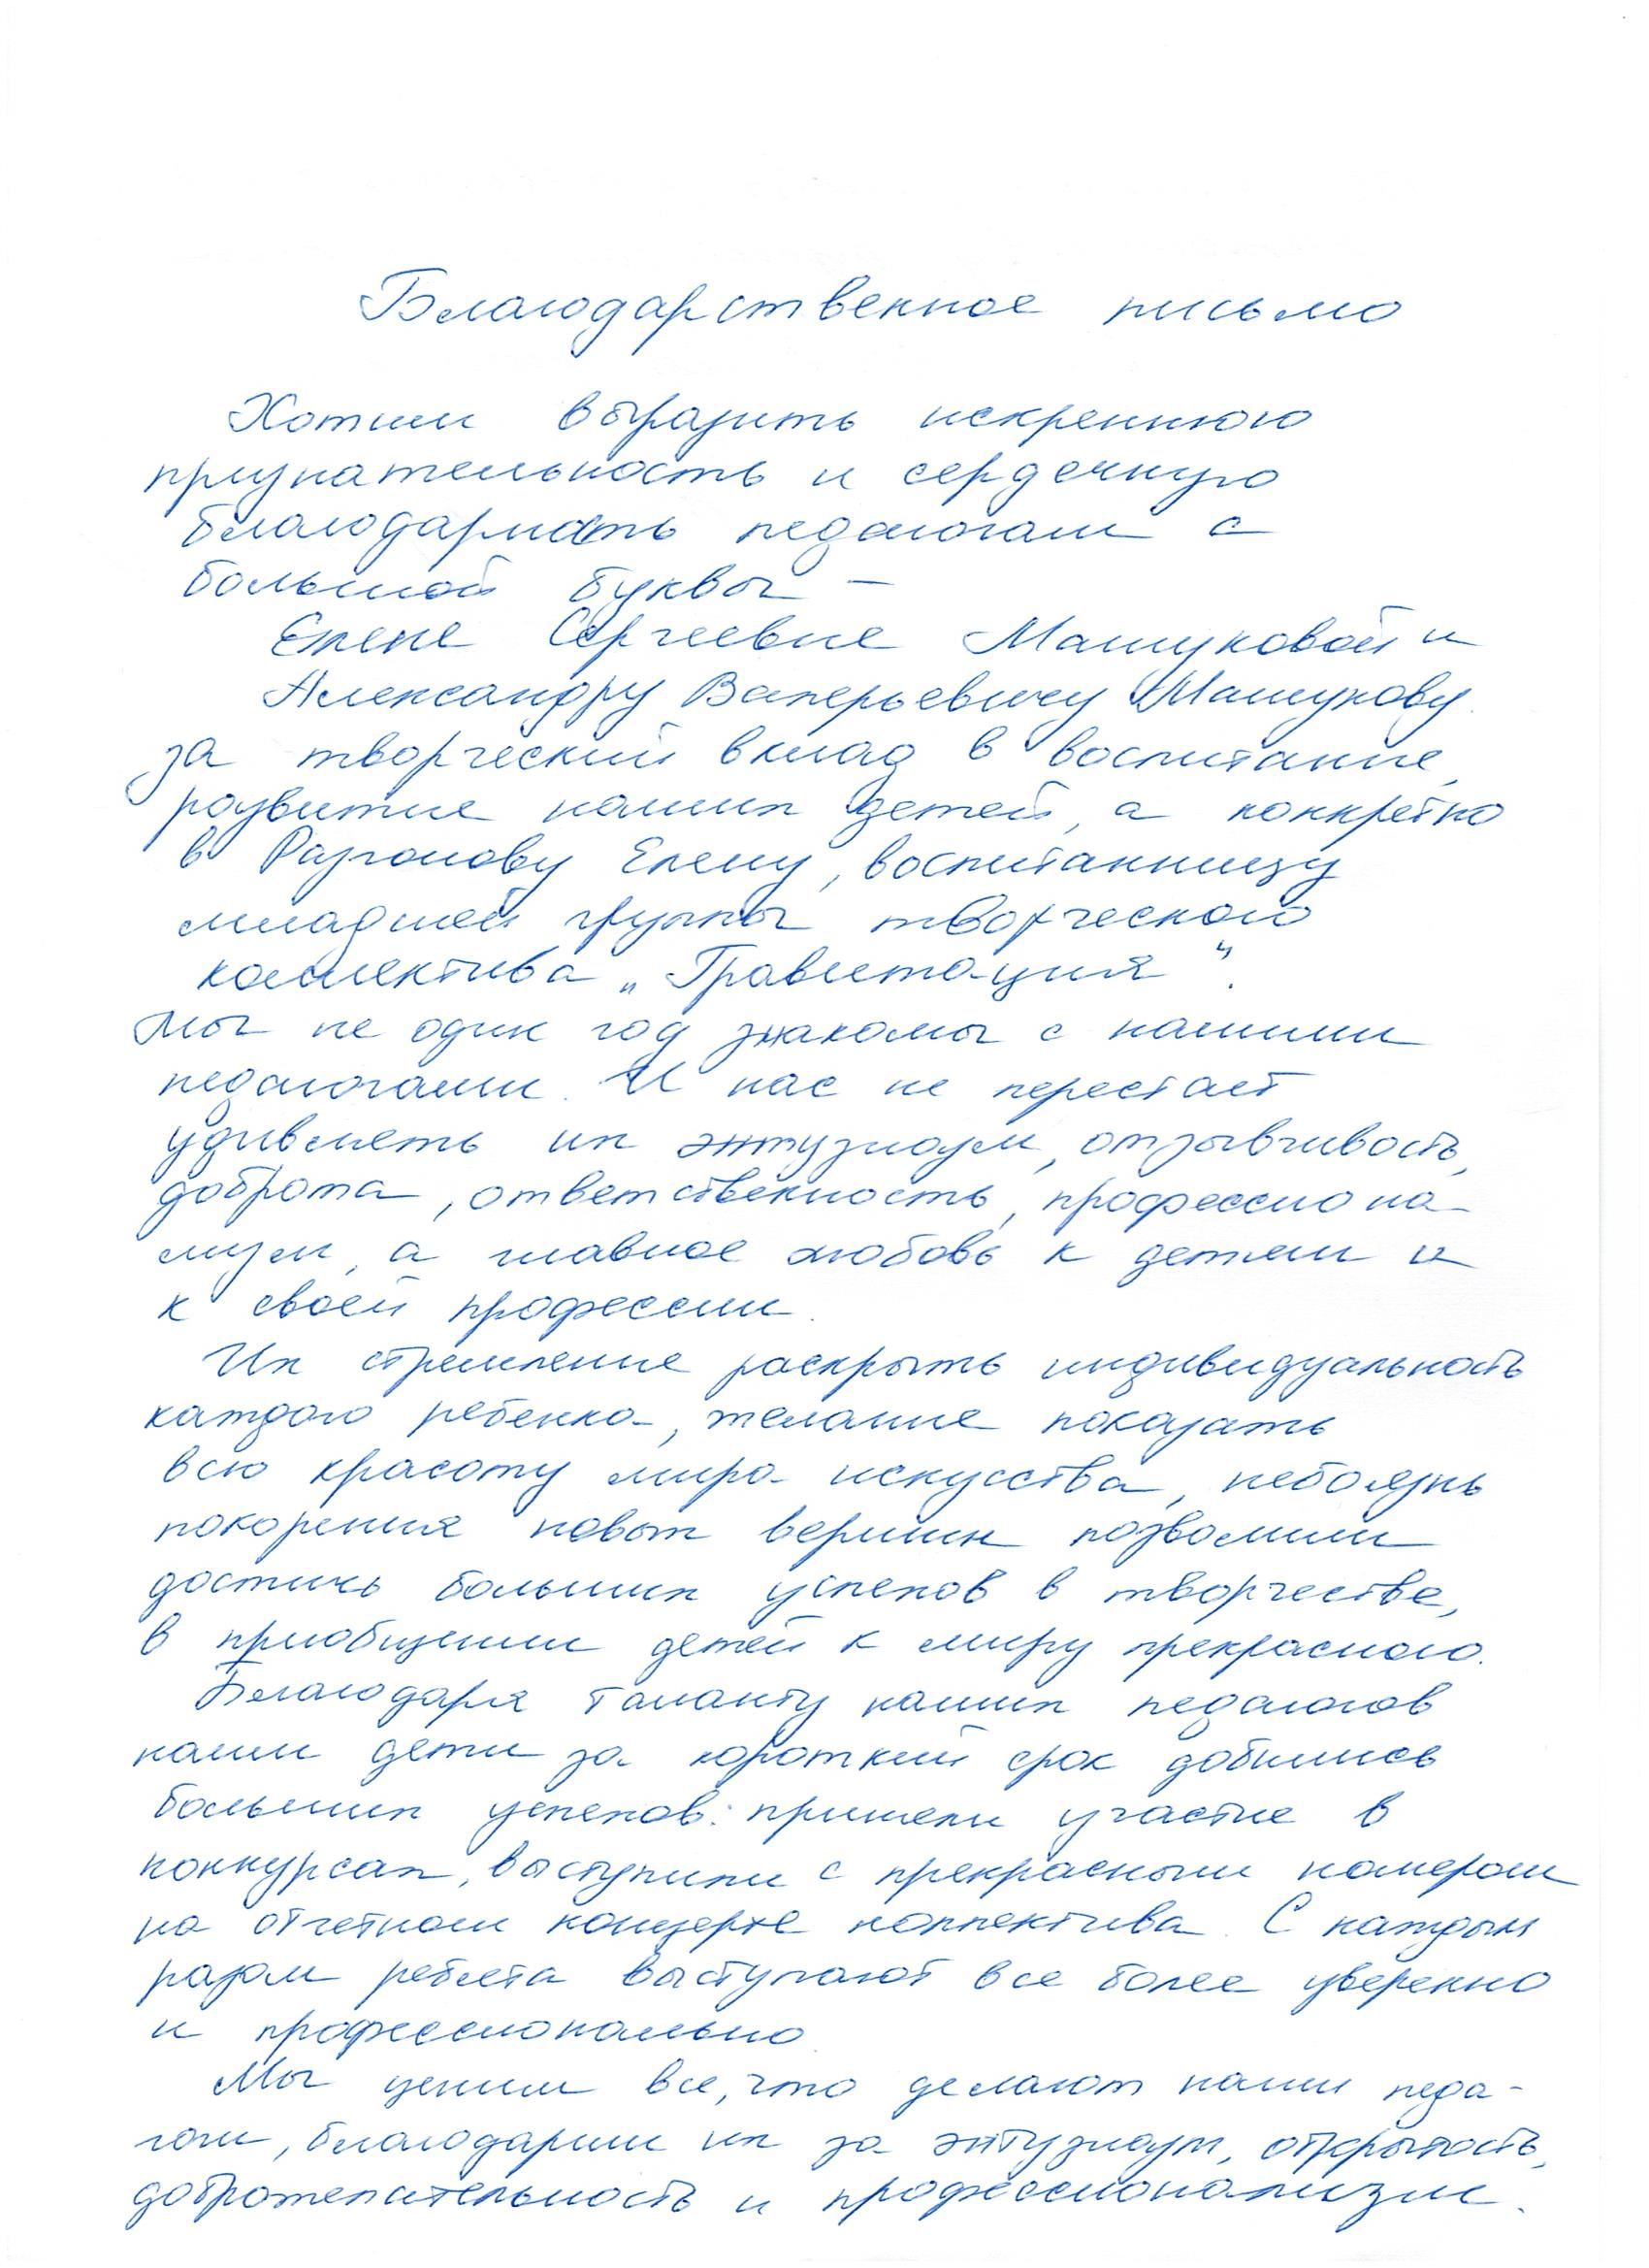 Благодарственное письмо
Хотим выразить искреннюю
признательность и сердечную
благодарность педагогам с
большой буквы –
Елене Сергеевне Машуковой и
Александру Валерьевичу Машукову
за творческий вклад в воспитание,
развитие наших детей, а конкретно
в Разгонову Елену, воспитанницу
младшей группы творческого
коллектива „Гравитация“.
Мы не один год знакомы с нашими
педагогами. И нас не перестает
удивлять их энтузиазм, отзывчивость,
доброта, ответственность, профессиона-
лизм, а главное любовь к детям и
к своей профессии.
Их стремление раскрыть индивидуальность
каждого ребенка, желание показать
всю красоту мира искусства, небоязнь
покорения новых вершин позволили
достичь больших успехов в творчестве,
в приобщении детей к миру прекрасного.
Благодаря таланту наших педагогов
наши дети за короткий срок добились
больших успехов: приняли участие в
конкурсах, выступили с прекрасным номером
на отчетном концерте коллектива. С каждым
разом ребята выступают все более уверенно
и профессионально.
Мы ценим все, что делают наши педа-
гоги, благодарим их за энтузиазм, открытость,
доброжелательность и профессионализм.